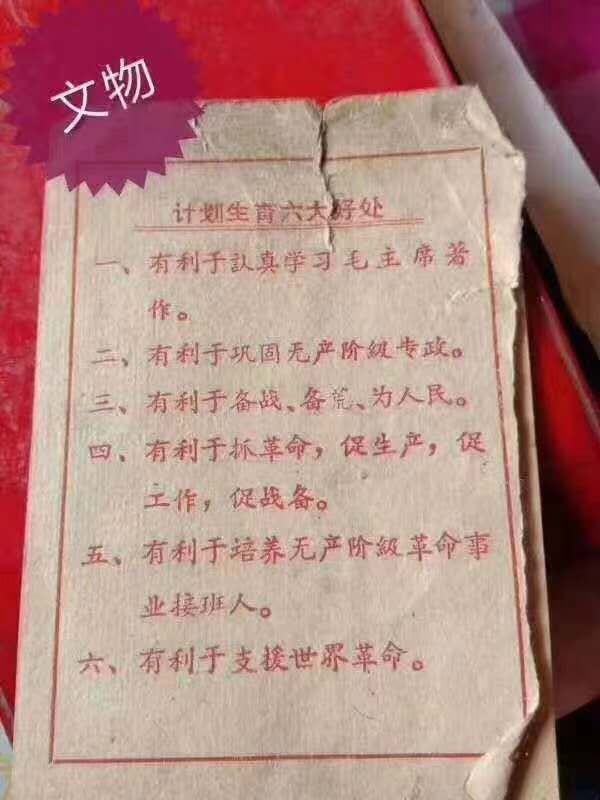 文物
计划生育六大好处
一、有利于認真学习毛主席著
作。
二、有利于巩固无产阶級专政。
三、有利于备战、备荒、为人民。
四、有利于抓革命，促生产，促
工作，促战备。
五、有利于培养无产阶級革命事
业接班人。
六、有利于支援世界革命。